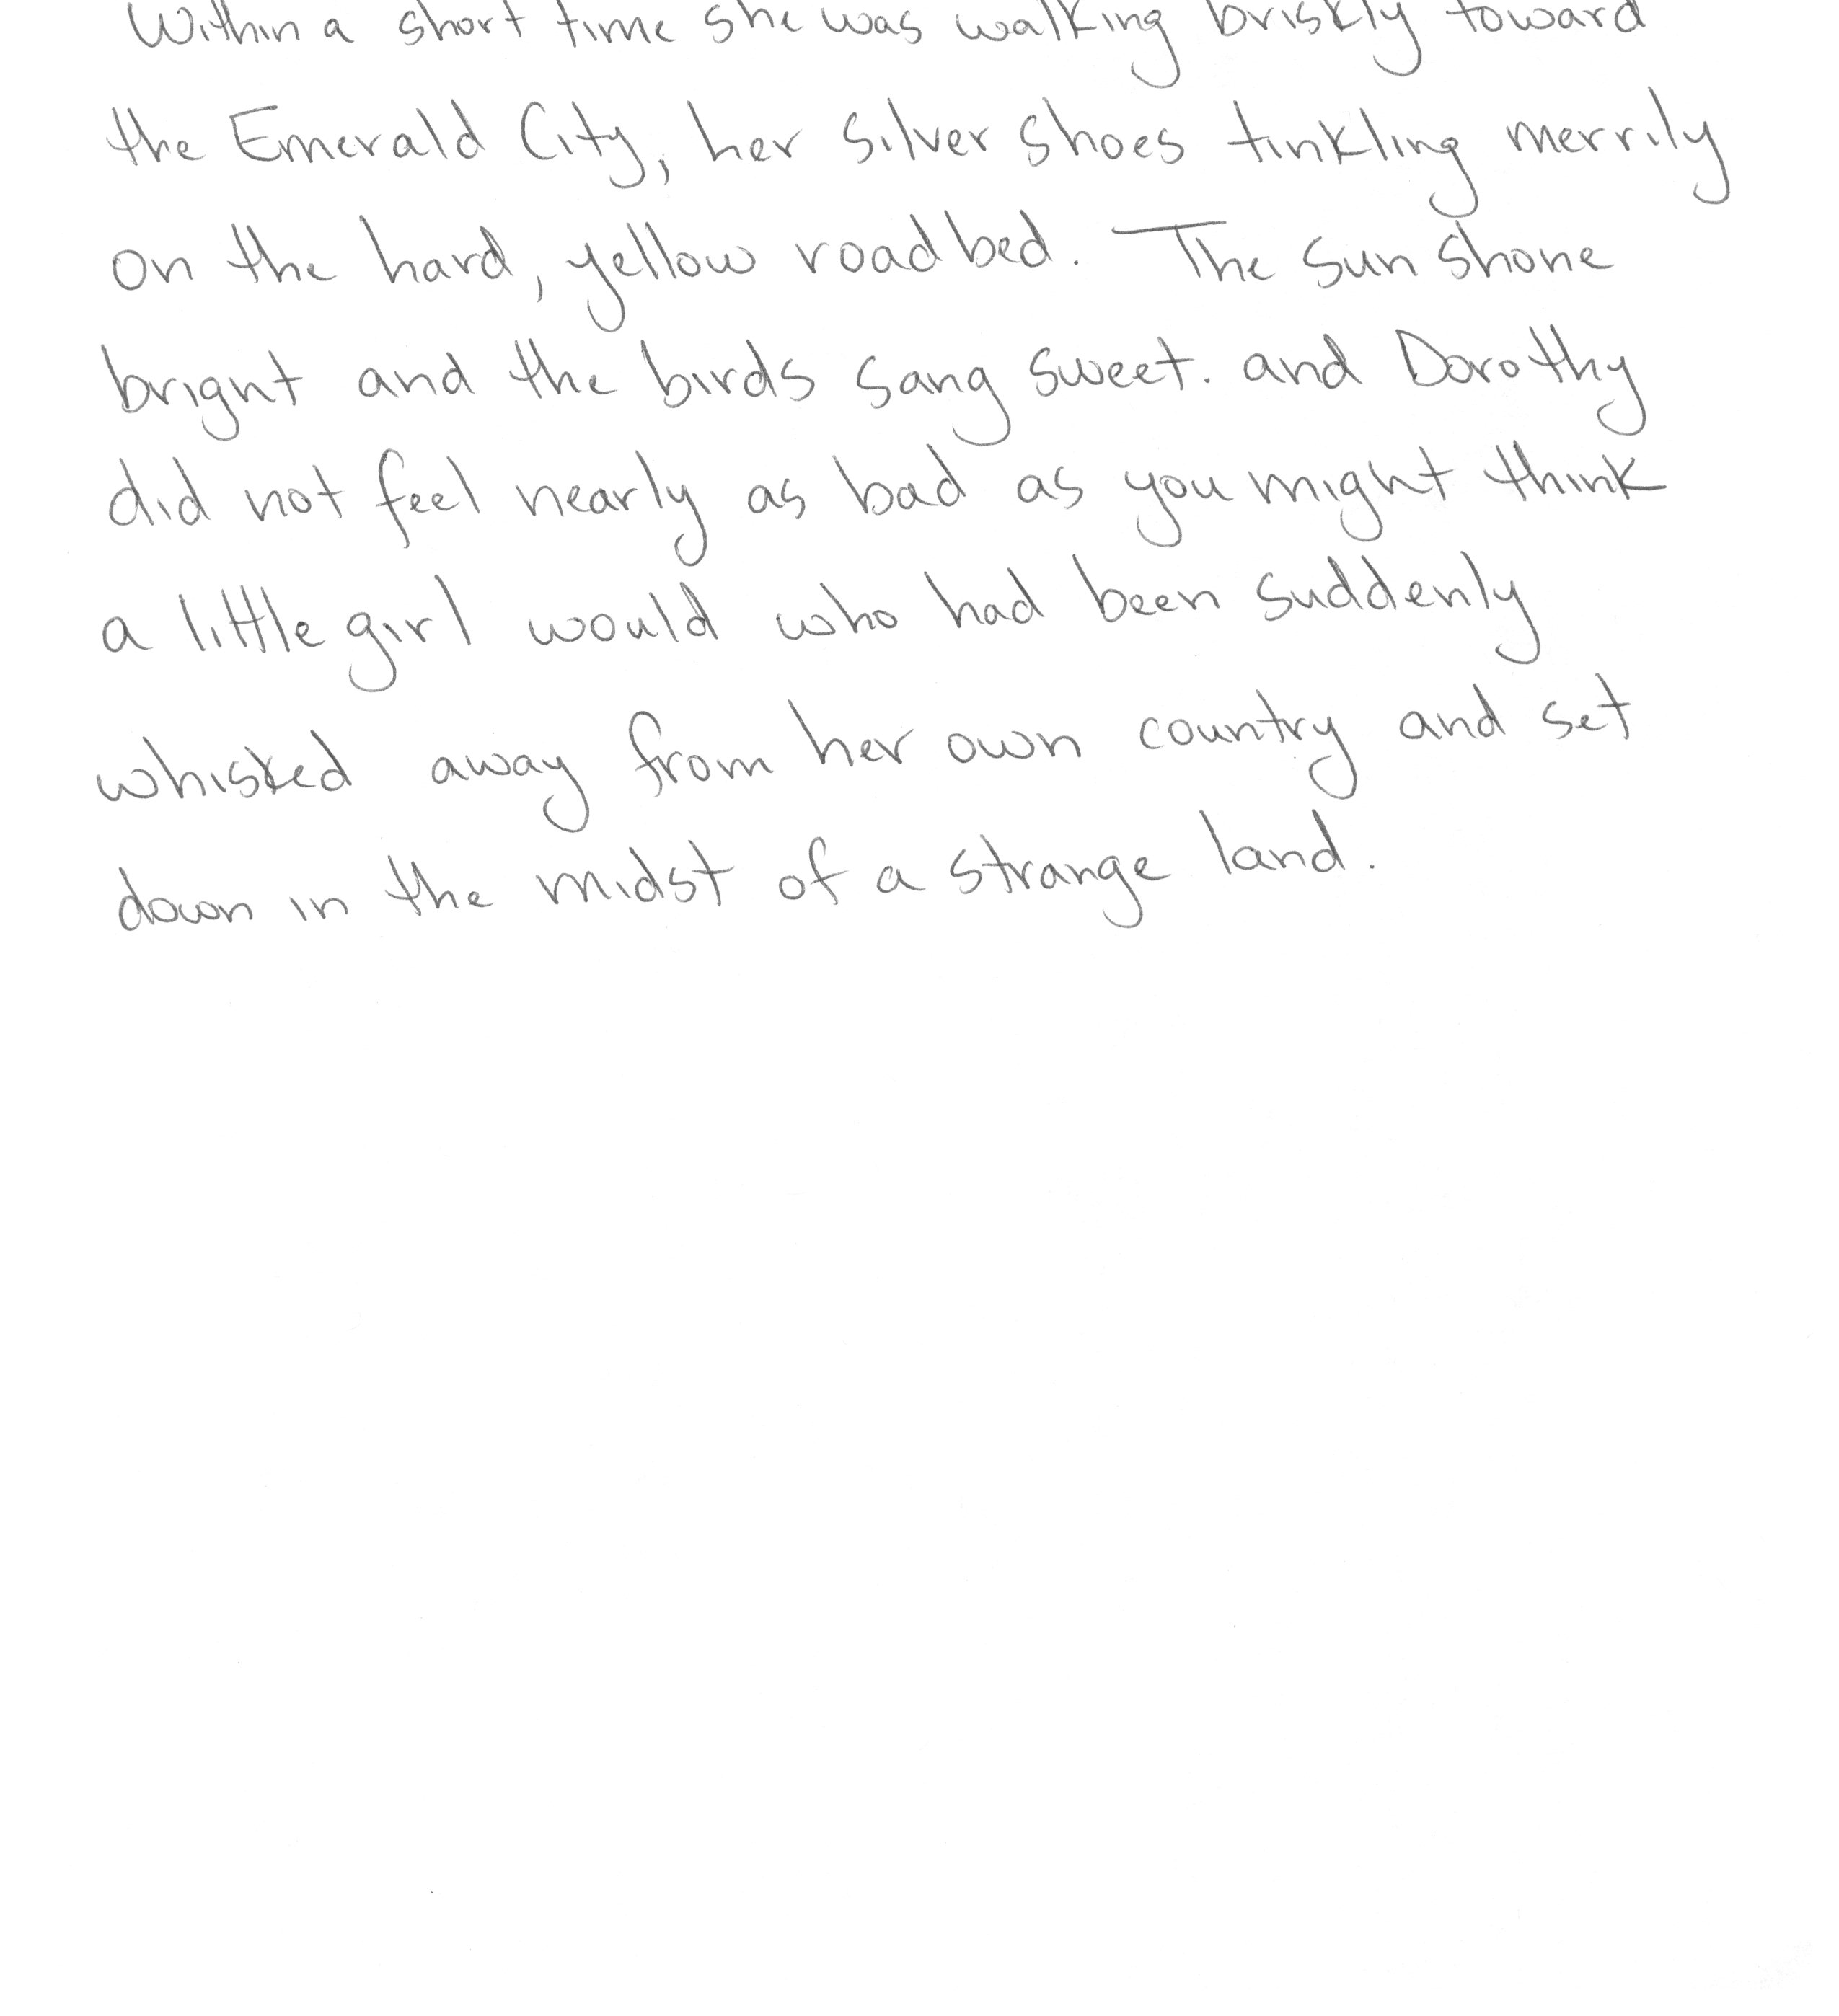 Within a short time she was walking briskly toward
the Emerald City, her silver shoes tinkling merrily
on the hard, yellow roadbed. The sun shone
bright and the birds sang sweet. and Dorothy
did not feel nearly as bad as you might think
a little girl would who had been suddenly
whisked away from her own country and set
down in the midst of a strange land.